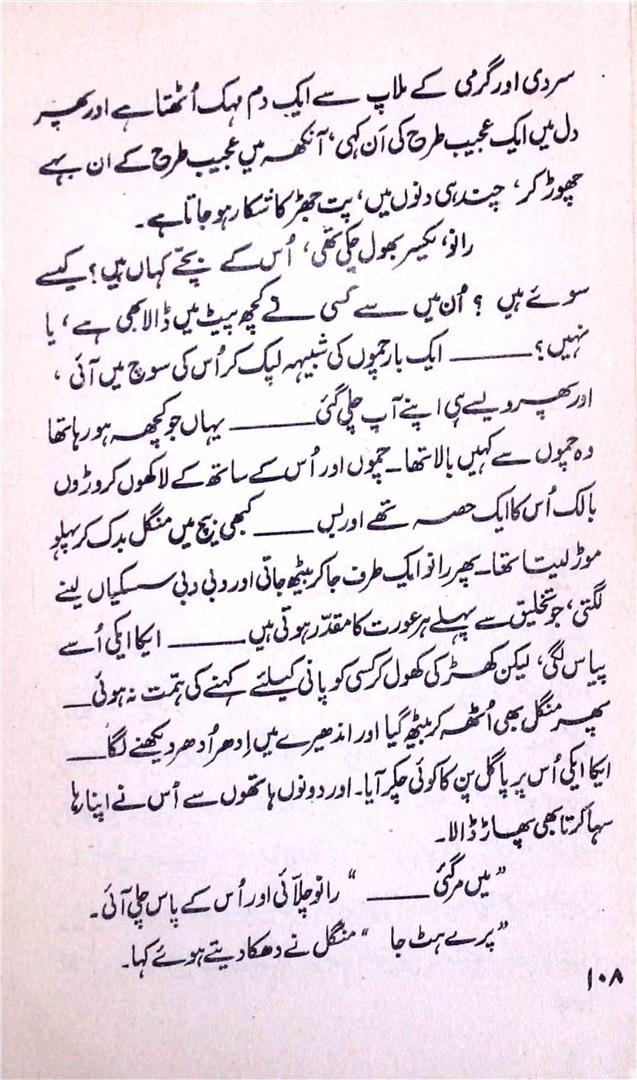 سردی اور گرمی کے ملاپ سے ایک دم مہک اُٹھتا ہے اور پھر
دل میں ایک عجیب طرح کی اَن کہی، آنکھ میں عجیب طرح کے ان بہے
چھوڑ کر، چند ہی دنوں میں، پت جھڑ کا شکار ہو جاتا ہے۔
رانو، یکسر بھول چکی تھی، اُس کے بچّے کہاں ہیں؟ کیسے
سوئے ہیں ؟ اُن میں سے کسی نے کچھ پیٹ میں ڈالا بھی ہے، یا
نہیں؟ ـــــــــ ایک بار جموں کی شبیہہ لپک کر اُس کی سوچ میں آئی ،
اور پھر ویسے ہی اپنے آپ چلی گئی ـــــــــ یہاں جو کچھ ہو رہا تھا
وہ جموں سے کہیں بالا تھا۔ جموں اور اُس کے ساتھ کے لاکھوں کروڑوں
بالک اُس کا ایک حصہ تھے اور بس ـــــــــ کبھی بیچ میں منگل بدک کر پہلو
موڑ لیتا تھا۔ پھر رانو ایک طرف جا کر بیٹھ جاتی اور دبی دبی سسکیاں لینے
لگتی، جو تخلیق سے پہلے ہر عورت کا مقدّر ہوتی ہیں ـــــــــ ایکا ایکی اُسے
پیاس لگی، لیکن کھڑکی کھول کر کسی کو پانی کیلئے کہنے کی ہمّت نہ ہوئی ــــ
پھر منگل بھی اُٹھ کر بیٹھ گیا اور اندھیرے میں اِدھر اُدھر دیکھنے لگا ــــ
ایکا ایکی اُس پر پاگل پن کا کوئی چکر آیا۔ اور دونوں ہاتھوں سے اُس نے اپنا رہا
سہا کرتا بھی پھاڑ ڈالا۔
”میں مر گئی ـــــــــ “ رانو چلاّئی اور اُس کے پاس چلی آئی۔
”پرے ہٹ جا “ منگل نے دھکا دیتے ہوئے کہا۔
۱۰۸